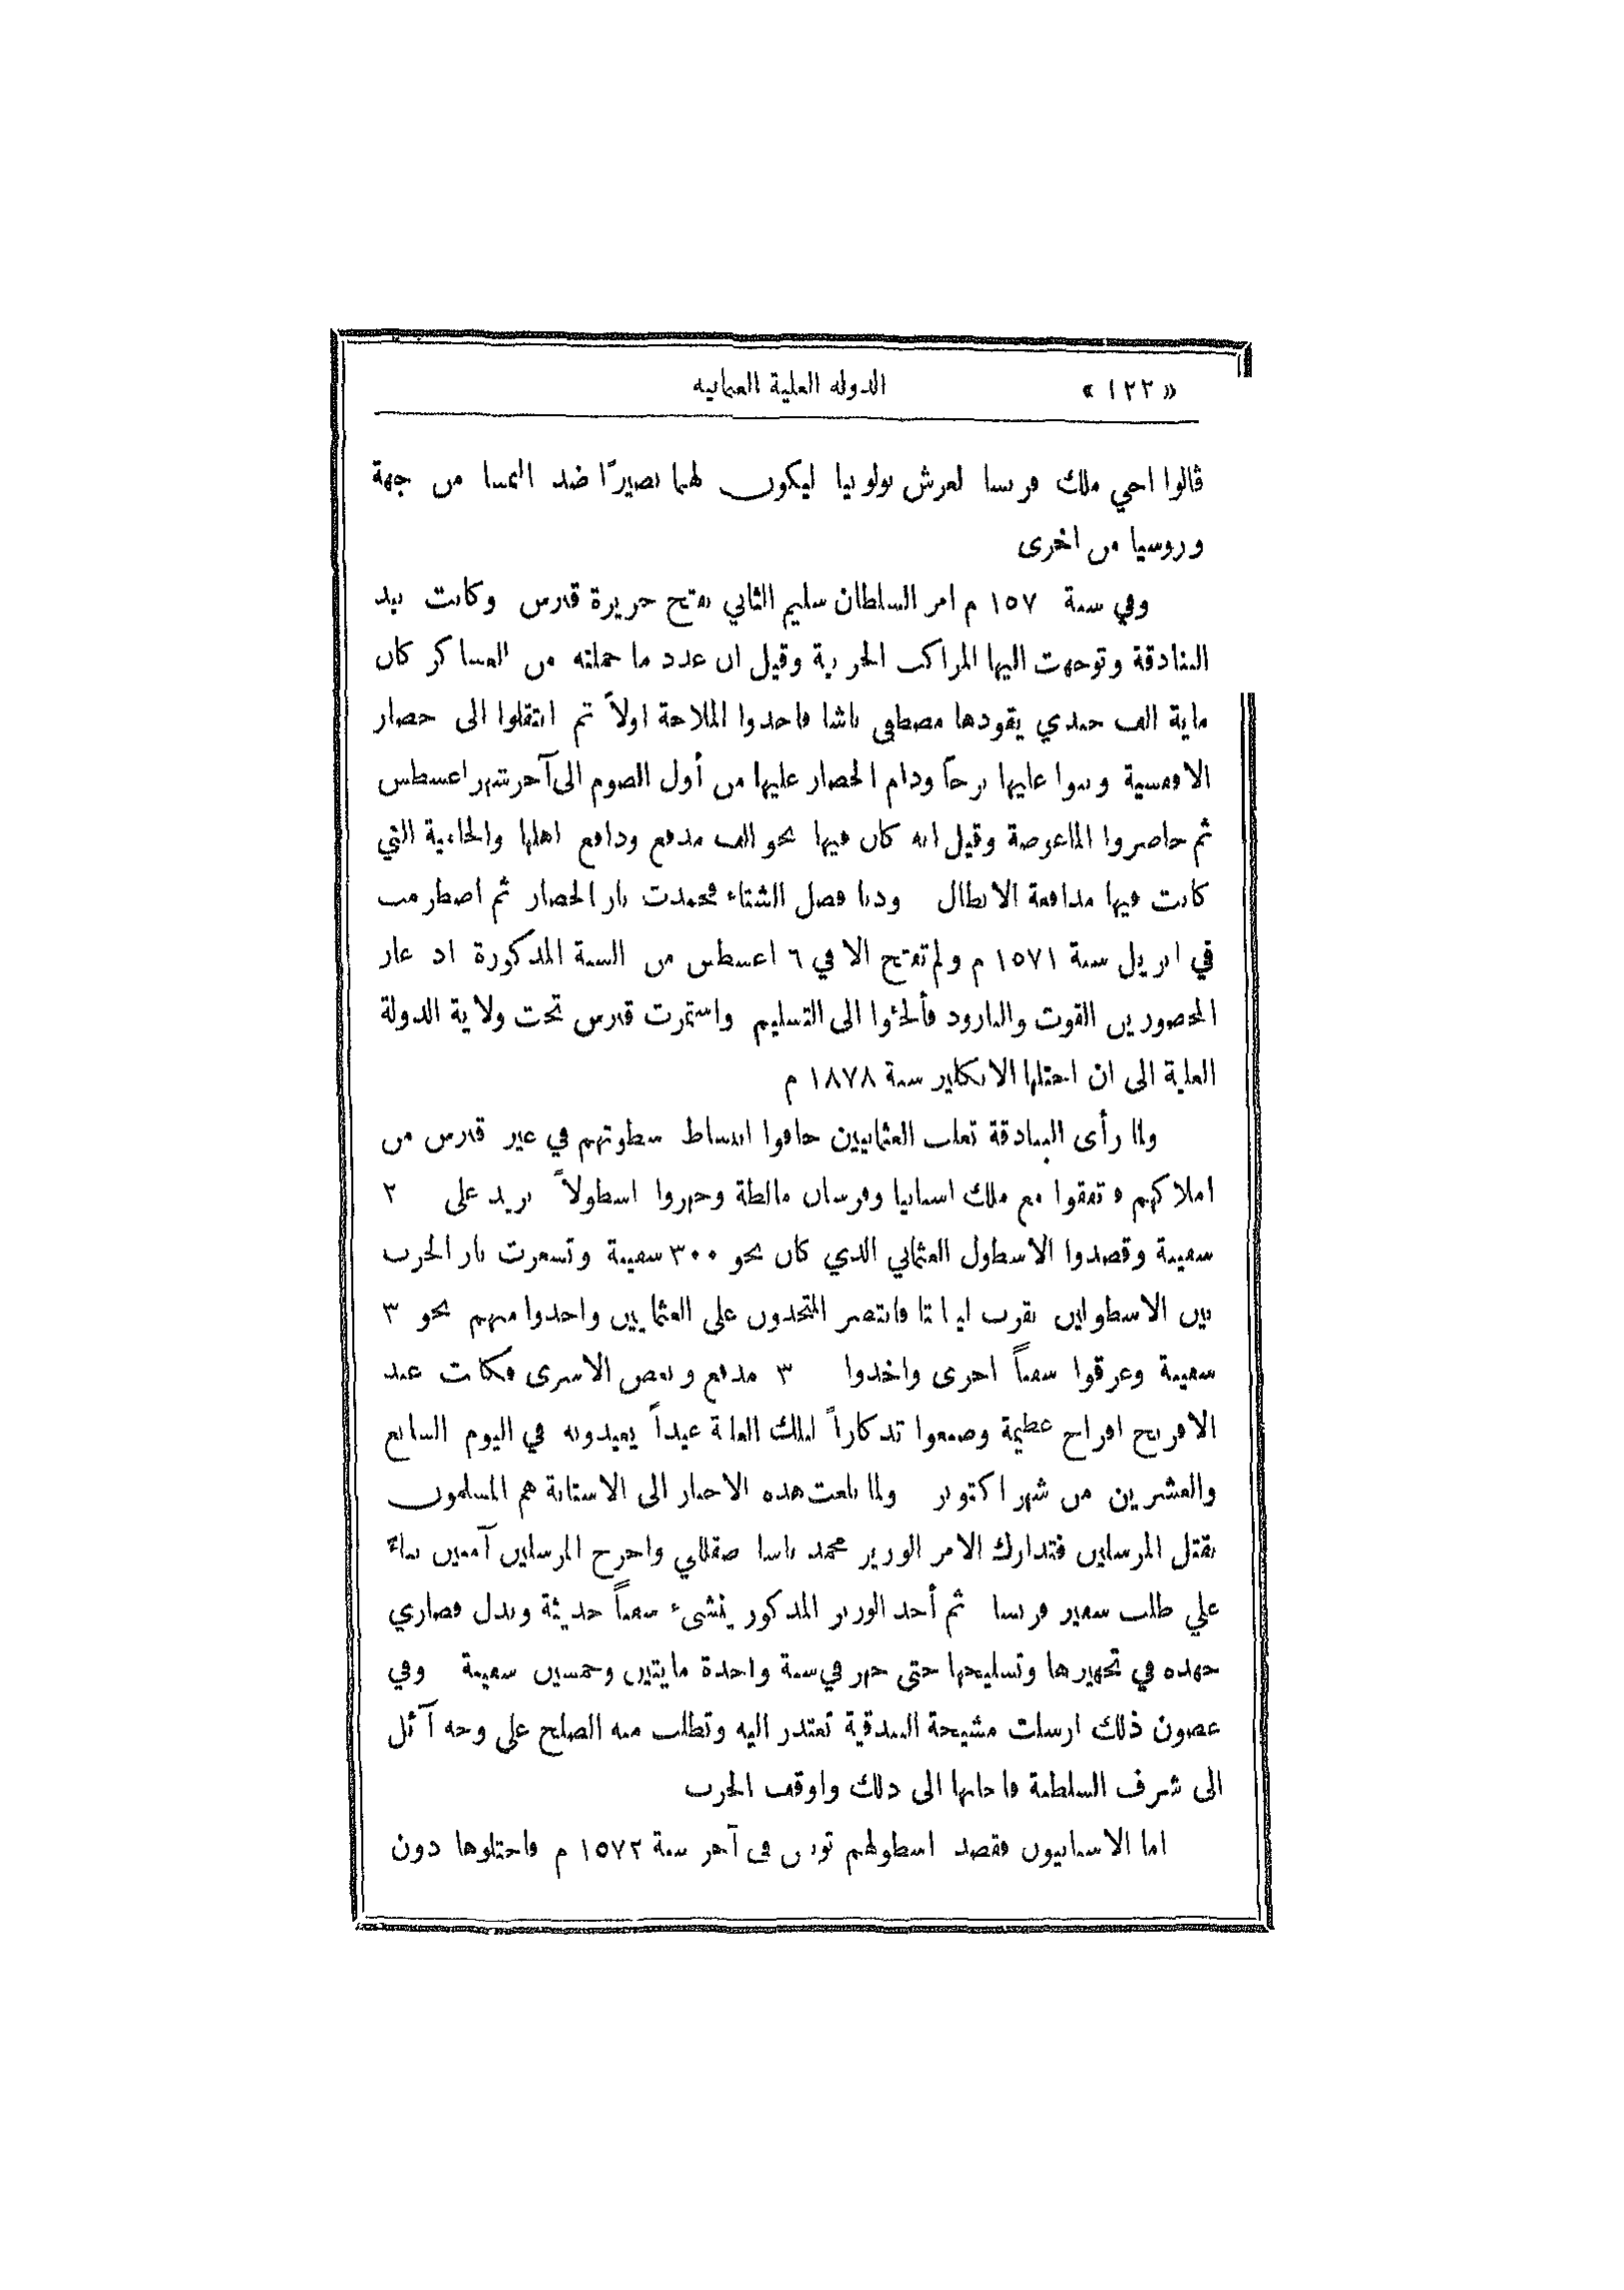 «١٢٢» الدولة العلية العثمانية
قالوا اخي ملك فرنسا لعرش بولونيا ليكون لهما نصيرًا ضد النمسا من جهة
وروسيا من اخرى
وفي سنة ١٥٧ م امر السلطان سليم الثاني بفتح جزيرة قبرس وكانت بيد
البنادقة وتوجهت اليها المراكب الحربية وقيل ان عدد ما حملته من العساكر كان
ماية الف جندي يقودها مصطفى باشا فاخذوا الملاحة اولاً ثم انتقلوا الى حصار
الافقسية وبنوا عليها برجاً ودام الحصار عليها من أول الصوم الى آخر شهر اغسطس
ثم حاصروا الماغوصة وقيل انه كان فيها نحو الف مدفع ودافع اهلها والحامية التي
كانت فيها مدافعة الابطال ودنا فصل الشتاء فخمدت نار الحصار ثم اضطرمت
في ابريل سنة ١٥٧١ م ولم تفتح الا في ٦ اغسطس من السنة المذكورة اذ عاز
المحصورين القوت والبارود فألجئوا الى التسليم واستمرت قبرس تحت ولاية الدولة
العلية الى ان احتلها الانكليز سنة ١٨٧٨ م
ولما رأى البنادقة تغلب العثمانيين خافوا انبساط سطوتهم في غير قبرس من
املاكهم فاتفقوا مع ملك اسبانيا وفرسان مالطة وجهزوا اسطولاً يزيد على ٢
سفينة وقصدوا الاسطول العثماني الذي كان نحو ٣٠٠ سفينة وتسعرت نار الحرب
بين الاسطولين بقرب ليبانتا فانتصر المتحدون على العثمانيين واخذوا منهم نحو ٣
سفينة وغرقوا سفناً اخرى واخذوا ٣ مدفع وبعض الاسرى فكانت عند
الافرنج افراح عظيمة وصنعوا تذكاراً لتلك الغلبة عيداً يعيدونه في اليوم السابع
والعشرين من شهر اكتوبر ولما بلغت هذه الاخبار الى الاستانة هم المسلمون
بقتل المرسلين فتدارك الامر الوزير محمد باشا صقللي واخرج المرسلين آمنين بناءً
علي طلب سفير فرنسا ثم أخذ الوزير المذكور ينشىء سفناً حديثة وبذل قصارى
جهده في تجهيزها وتسليحها حتى جهز في سنة واحدة مايتين وخمسين سفينة وفي
غصون ذلك ارسلت مشيخة البندقية تعتذر اليه وتطلب منه الصلح على وجه آئل
الى شرف السلطنة فاجابها الى ذلك واوقف الحرب
اما الاسبانيون فقصد اسطولهم تونس في آخر سنة ١٥٧٢ م فاحتلوها دون